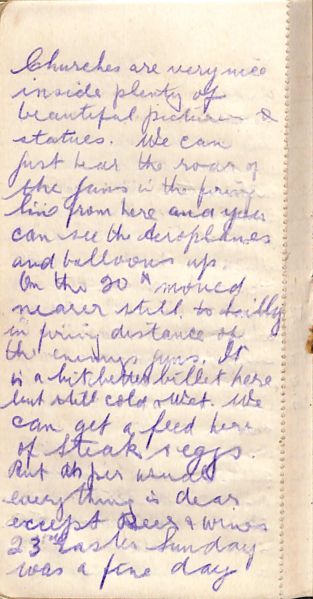 Churches are very nice
inside plenty of
beautiful pictures &
statues. We can
just hear the roar of
the guns in the firing
line from here and you
can see the aeroplanes
and balloons up.
On the 20th moved
nearer still to Sailly
in firing distance of
the enemys guns. It
is a bit better billet here
but still cold & wet. We
can get a feed here
of steak & eggs.
But as per usual
everything is dear
except Beer & wines
23rd Easter Sunday
was a fine day